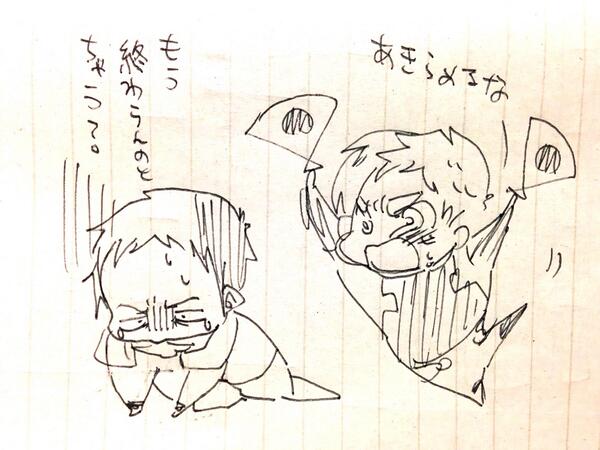 あきらめるな
もう
終わらんのと
ちゃう?。